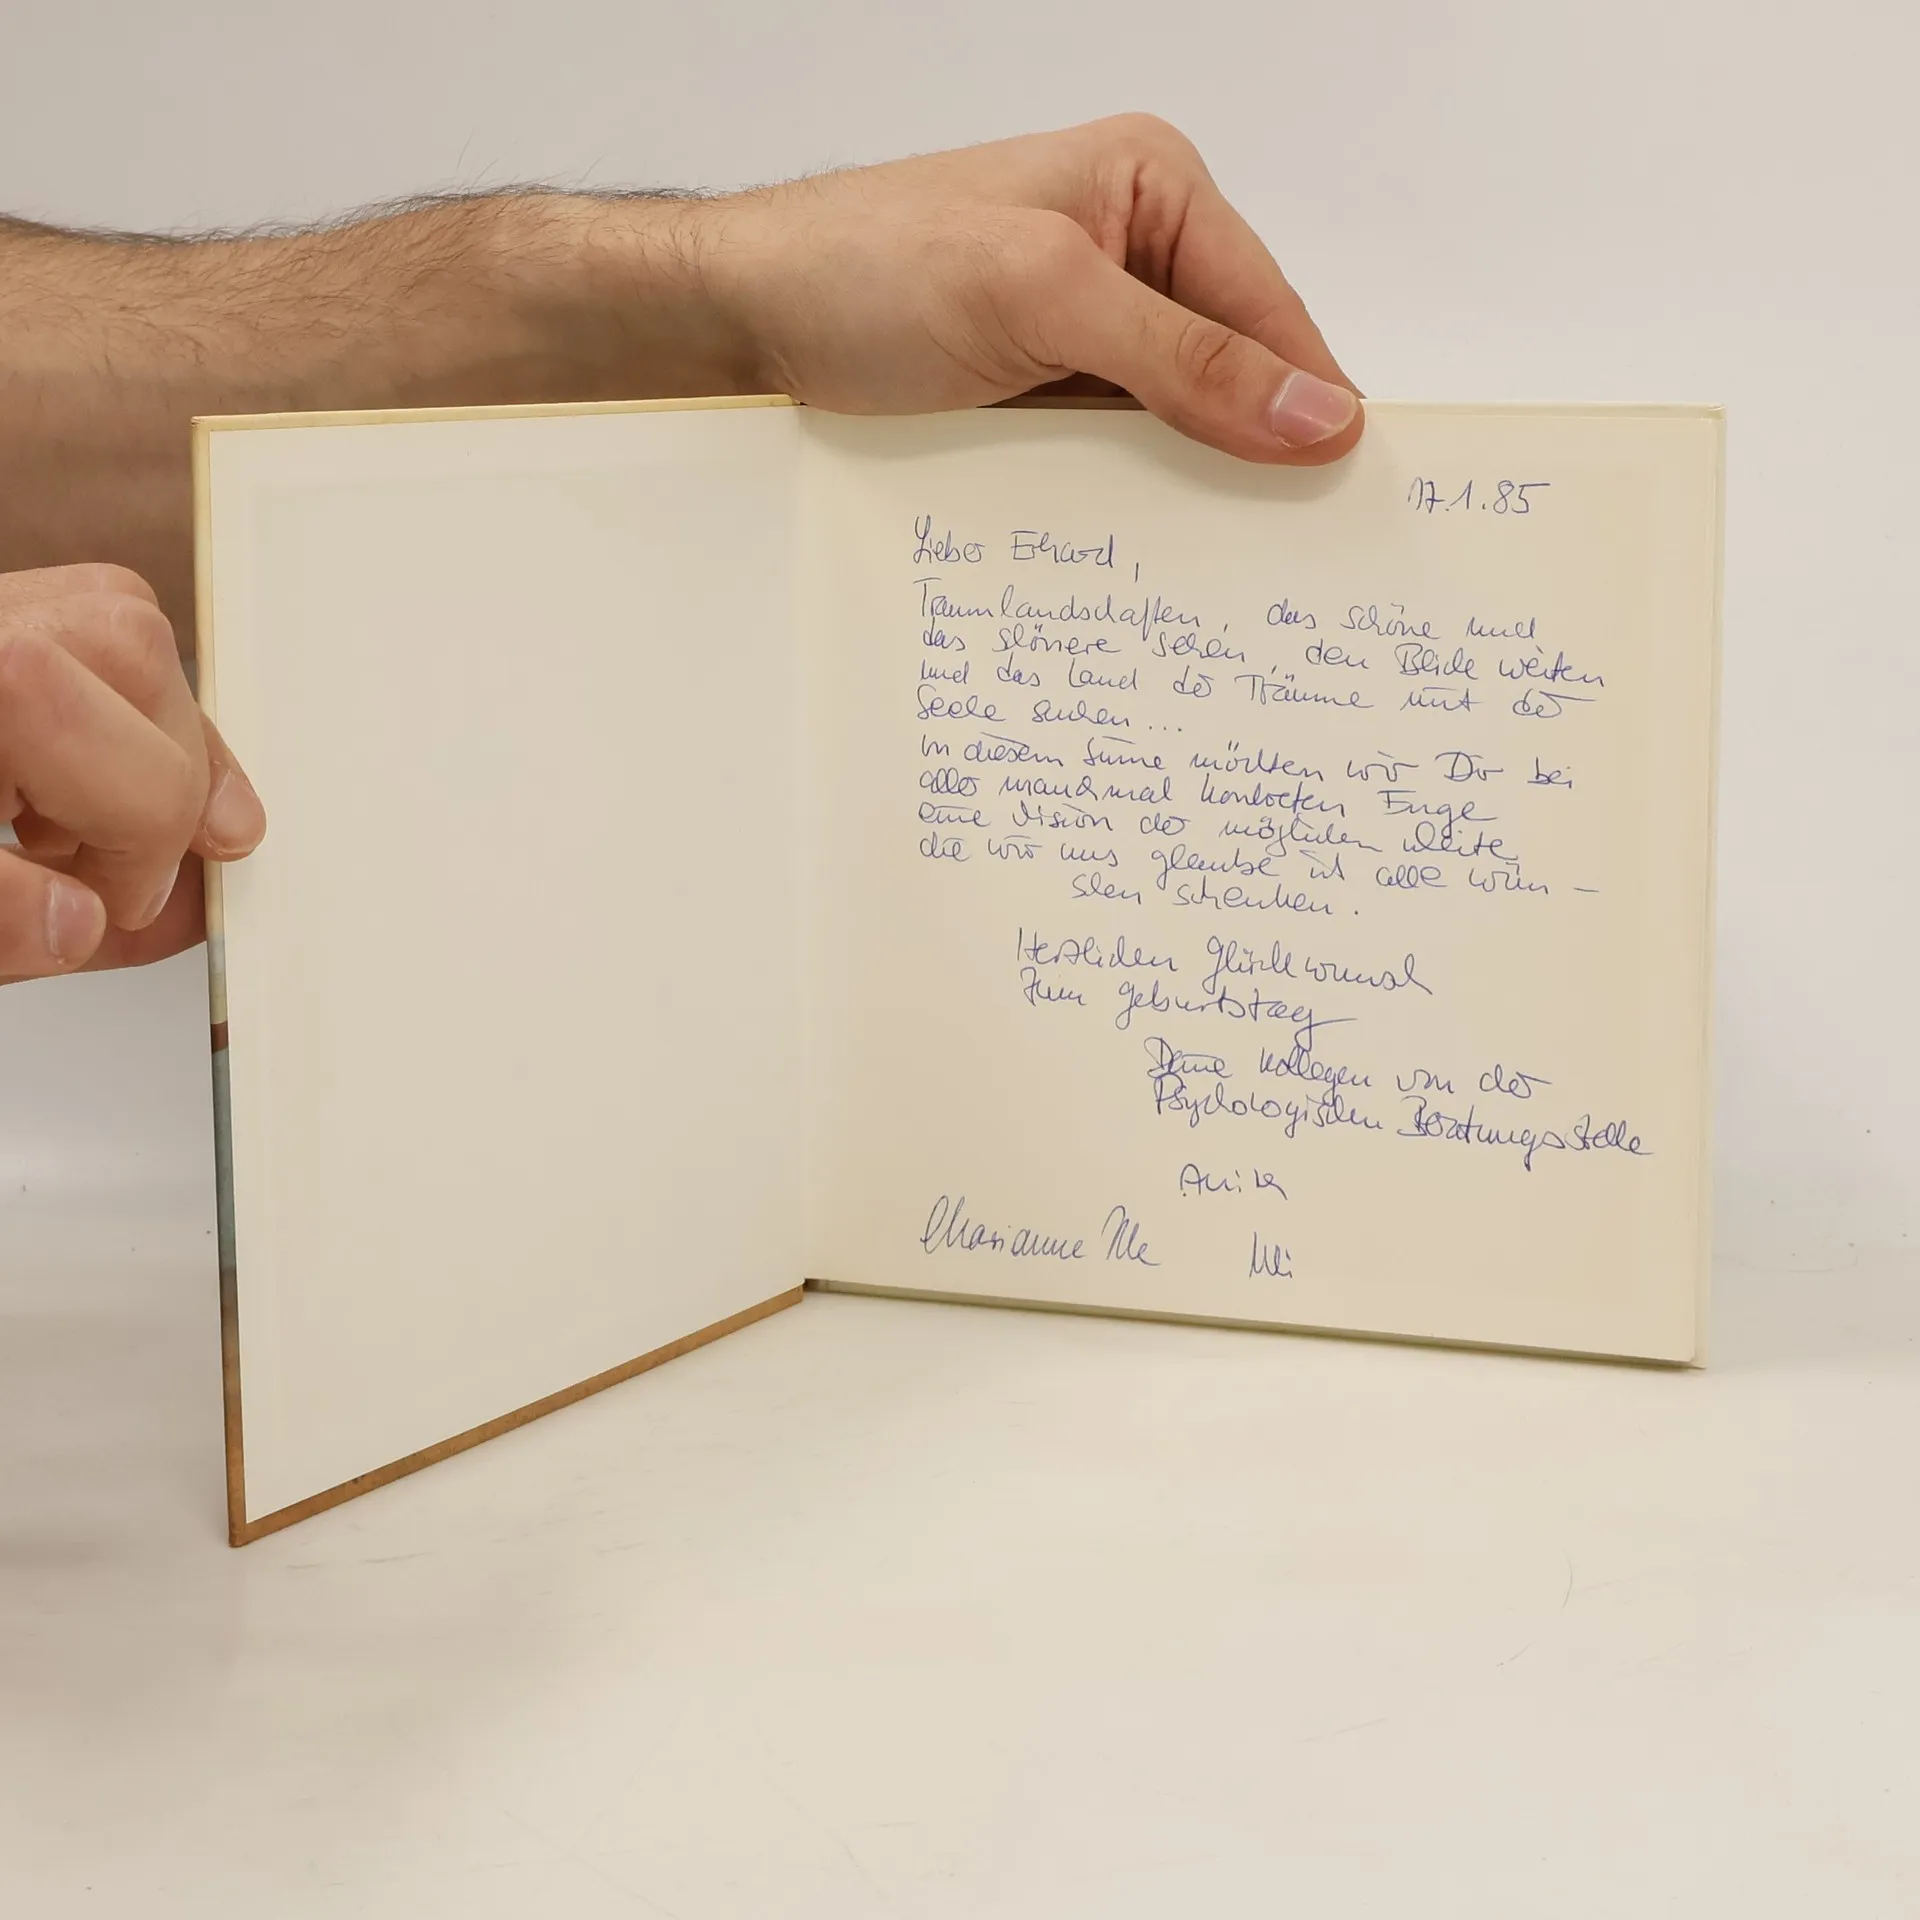 17.1.85
Lieber Erhard,
Traumlandschaften, das schöne und
das schönere sehen, den Blick weiten
und das Land der Träume mit der
Seele suchen...
In diesem Sinne möchten wir Dir bei
aller manchmal konkreten Enge
eine Vision der möglichen Weite,
die wir uns glaube ich alle wün-
schen schenken.
Herzlichen Glückwunsch
zum Geburtstag
Deine Kollegen von der
Psychologischen Beratungsstelle
Anita
Marianne Uli